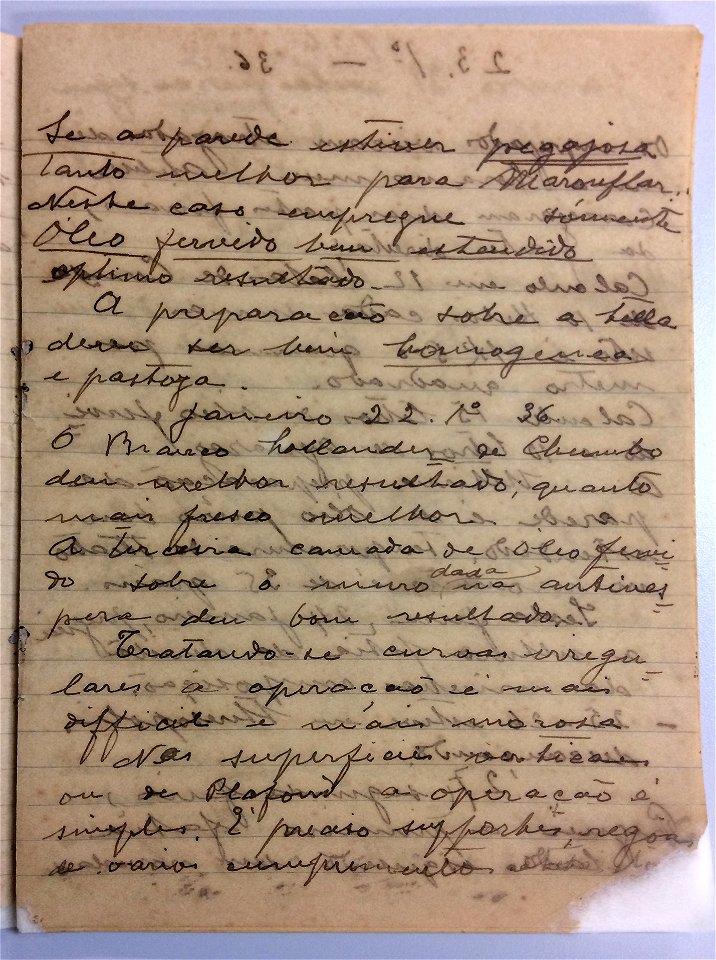 Se a parede estiver pegajosa
tanto melhor para Marouflar.
Neste caso empregue sómente
Óleo fervido bem estendido
optimo resultado.
A preparação sobre a tella
deve ser bem homogenea
e pastoza.
Janeiro 22. 1º 36
O Branco hollandez de Chumbo
deu melhor resultado, quanto
mais fresco melhor.
A terceira camada de Óleo fervi-
do sobre o muro dada na antives-
pera deu bom resultado.
Tratando-se curvas irregu-
lares a operacão é mais
difficil e mais morosa
Nas superficies verticaes
ou de Plafond a operação é
simples. É preciso supportes, regoas
de varios cumprimentos